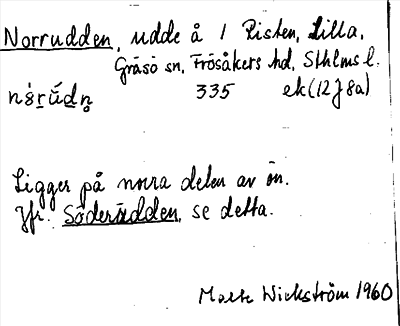 Norrudden, udde å 1 Risten, Lilla,
Gräsö sn, Frösåkers hd, Sthlms l.
335 ek (12J8a)
Ligger på norra delen av ön.
Jfr. Söderudden, se detta.
Wickström 1960